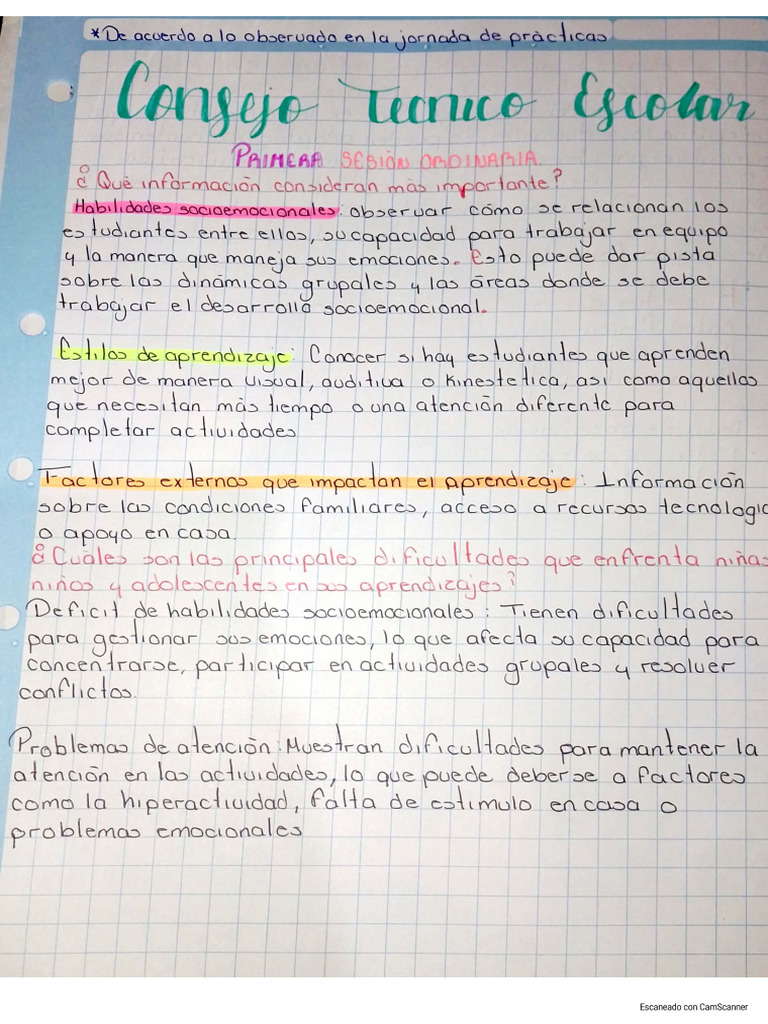 *De acuerdo a lo observado en la jornada de prácticas
Consejo Tecnico Escolar
PRIMERA SESIÓN ORDINARIA.
¿Qué información consideran más importante?
Habilidades socioemocionales: observar cómo se relacionan los
estudiantes entre ellos, su capacidad para trabajar en equipo
y la manera que maneja sus emociones. Esto puede dar pista
sobre las dinámicas grupales y las áreas donde se debe
trabajar el desarrollo socioemocional.
Estilos de aprendizaje: Conocer si hay estudiantes que aprenden
mejor de manera visual, auditiva o kinestetica, asi como aquellos
que necesitan más tiempo o una atención diferente para
completar actividades
Factores externos que impactan el aprendizaje: Información
sobre las condiciones familiares, acceso a recursos tecnologic
o apoyo en casa.
¿Cuáles son las principales dificultades que enfrenta niñas
niños y adolescentes en sus aprendizajes?
Deficit de habilidades socioemocionales: Tienen dificultades
para gestionar sus emociones, lo que afecta su capacidad para
concentrarse, participar en actividades grupales y resolver
conflictos.
Problemas de atención: Muestran dificultades para mantener la
atención en las actividades, lo que puede deberse a factores
como la hiperactividad, falta de estimulo en casa o
problemas emocionales
Escaneado con CamScanner